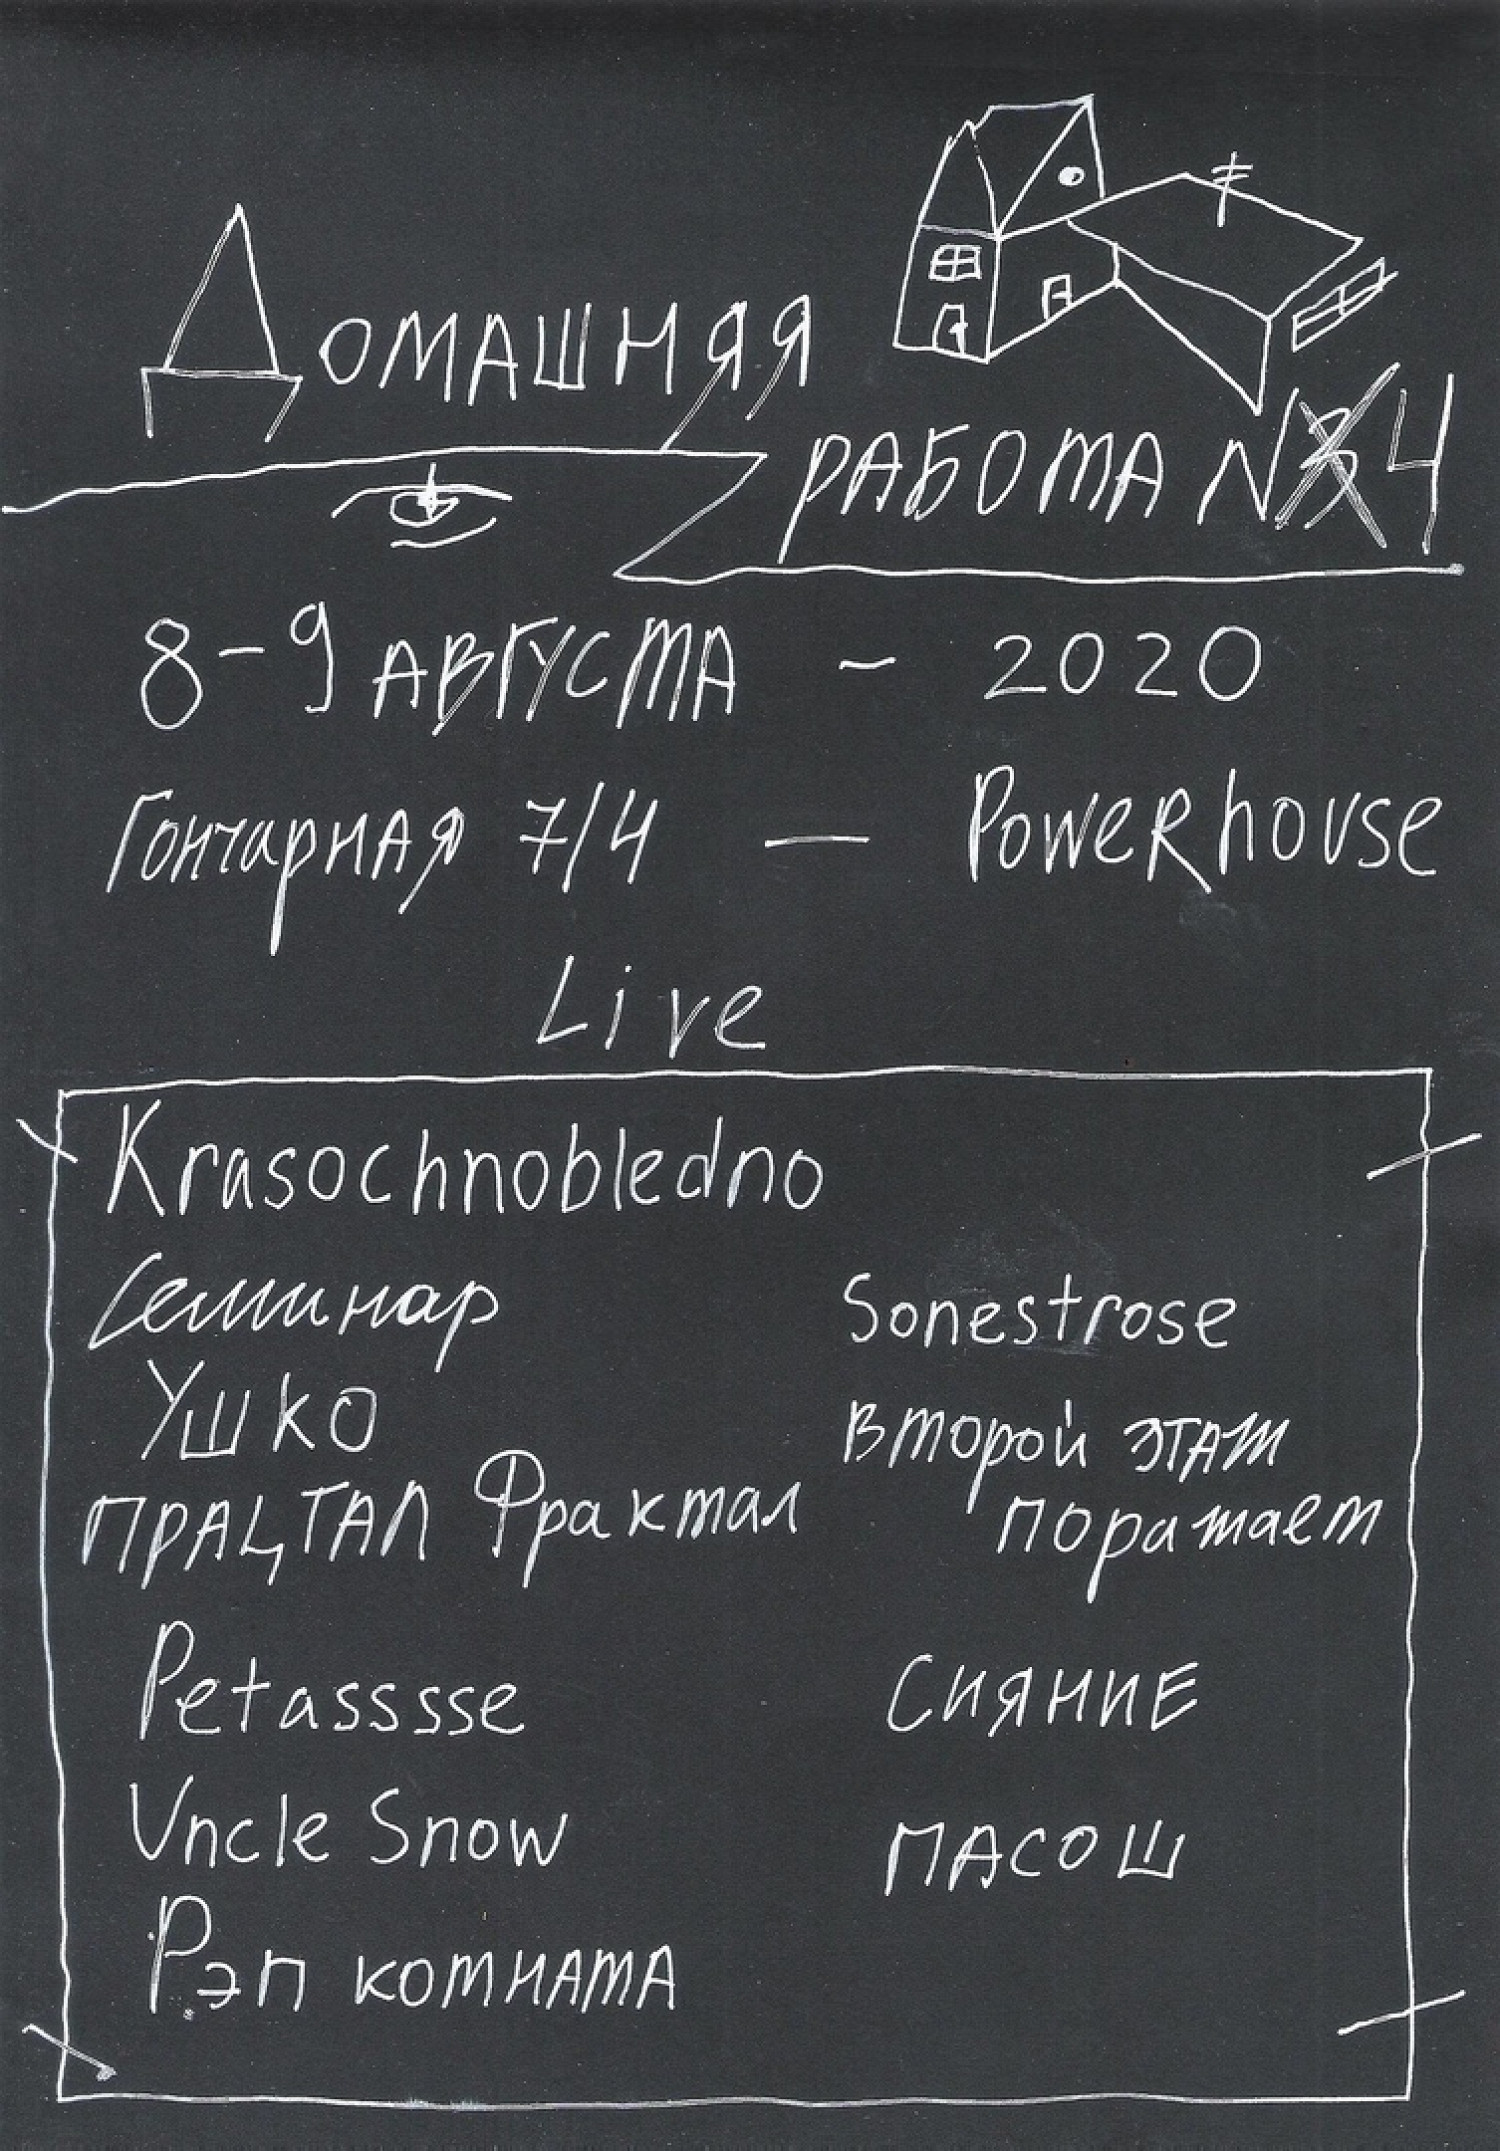 Домашняя
работа N3 4
8-9 августа - 2020
Гончарная 7/4 — Powerhouse
Live
Krasochnobledno
Семинар
Sonestrose
Ушко
Второй этаж
поражает
ПРАЦТАЛ Фрактал
Petasssse
Сияние
Uncle Snow
Пасош
Рэп комната